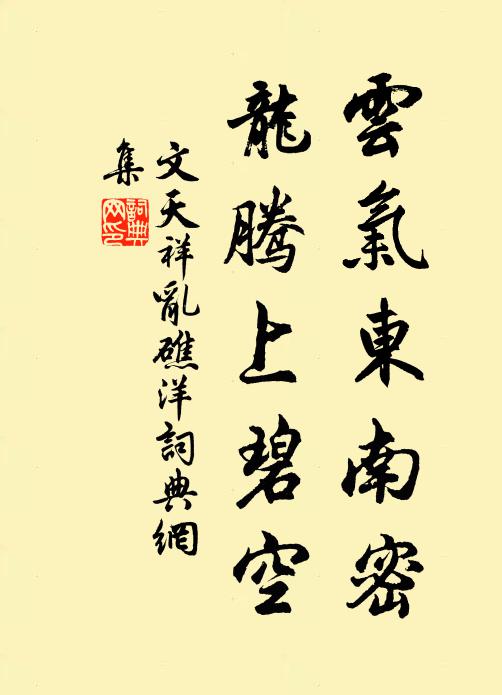 雲氣東南密
龍騰上碧空
文天祥亂礁洋詞典網
集
詞典網印